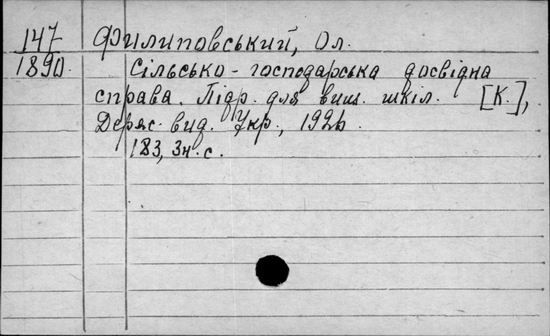 147 Филиповський, Ол.
1890. Сільсько-господарська досвідна
справа. Підр. для вищ. шкіл. [К.],
Держ. вид. Укр., 1926.
183, 3н. с.